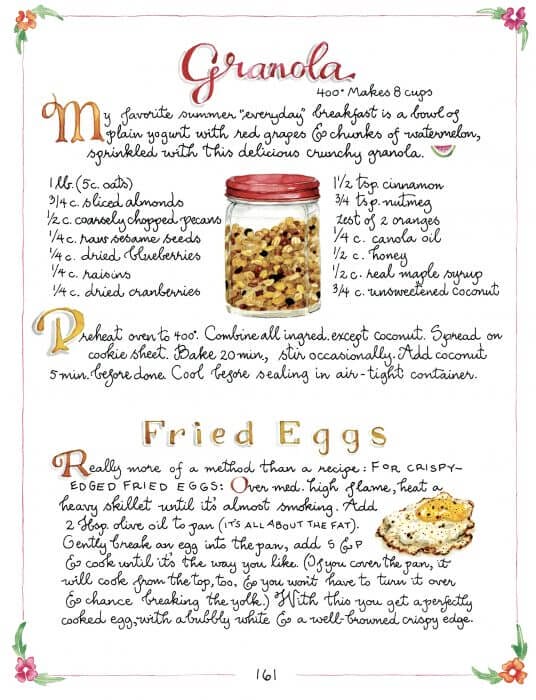 Granola
400° Makes 8 cups
My favorite summer "everyday" breakfast is a bowl of
plain yogurt with red grapes & chunks of watermelon,
sprinkled with this delicious crunchy granola.
1 lb. (5 c. oats)
3/4 c. sliced almonds
1/2 c. coarsely chopped pecans
1/4 c. raw sesame seeds
1/4 c. dried blueberries
1/4 c. raisins
1/4 c. dried cranberries
1 1/2 tsp. cinnamon
3/4 tsp. nutmeg
zest of 2 oranges
1/4 c. canola oil
1/2 c. honey
1/2 c. real maple syrup
3/4 c. unsweetened coconut
Preheat oven to 400°. Combine all ingred. except coconut. Spread on
cookie sheet. Bake 20 min., stir occasionally. Add coconut
5 min. before done. Cool before sealing in air-tight container.
Fried Eggs
Really more of a method than a recipe: FOR CRISPY-
EDGED FRIED EGGS: Over med. high flame, heat a
heavy skillet until it's almost smoking. Add
2 Tbsp. olive oil to pan (IT'S ALL ABOUT THE FAT).
Gently break an egg into the pan, add S & P
& cook until it's the way you like. (If you cover the pan, it
will cook from the top, too, & you won't have to turn it over
& chance breaking the yolk.) With this you get a perfectly
cooked egg, with a bubbly white & a well-browned crispy edge.
161